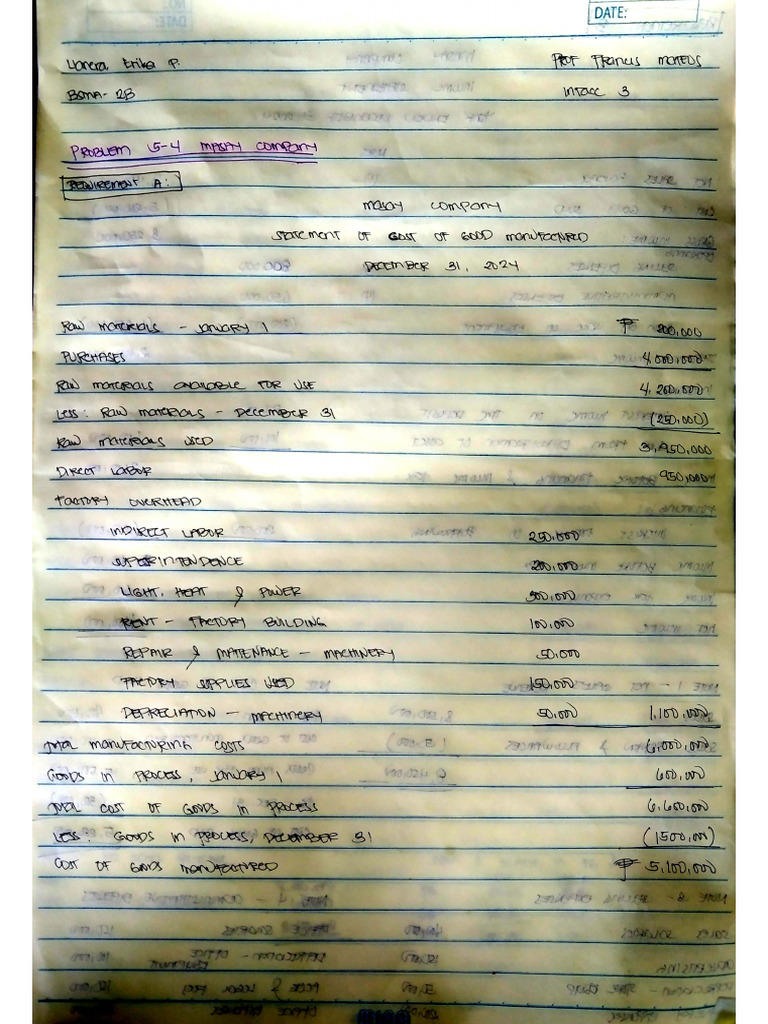 DATE:
Llanera Erika P. PROF FRANCIS MATEOS
BSMA - 2B INTACC 3
PROBLEM 15-4 MASAY COMPANY
REQUIREMENT A:
MASAY COMPANY
STATEMENT OF COST OF GOOD MANUFACTURED
DECEMBER 31, 2024
RAW MATERIALS - JANUARY 1 ₱ 200,000
PURCHASES 4,000,000
RAW MATERIALS AVAILABLE FOR USE 4,200,000
LESS: RAW MATERIALS - DECEMBER 31 (250,000)
RAW MATERIALS USED 3,950,000
DIRECT LABOR 950,000
FACTORY OVERHEAD
INDIRECT LABOR 250,000
SUPERINTENDENCE 200,000
LIGHT, HEAT & POWER 300,000
RENT - FACTORY BUILDING 100,000
REPAIR & MAITENANCE - MACHINERY 50,000
FACTORY SUPPLIES USED 150,000
DEPRECIATION - MACHINERY 50,000 1,100,000
TOTAL MANUFACTURING COSTS 6,000,000
GOODS IN PROCESS, JANUARY 1 600,000
TOTAL COST OF GOODS IN PROCESS 6,600,000
LESS: GOODS IN PROCESS, DECEMBER 31 (1500,000)
COST OF GOODS MANUFACTURED ₱ 5,100,000